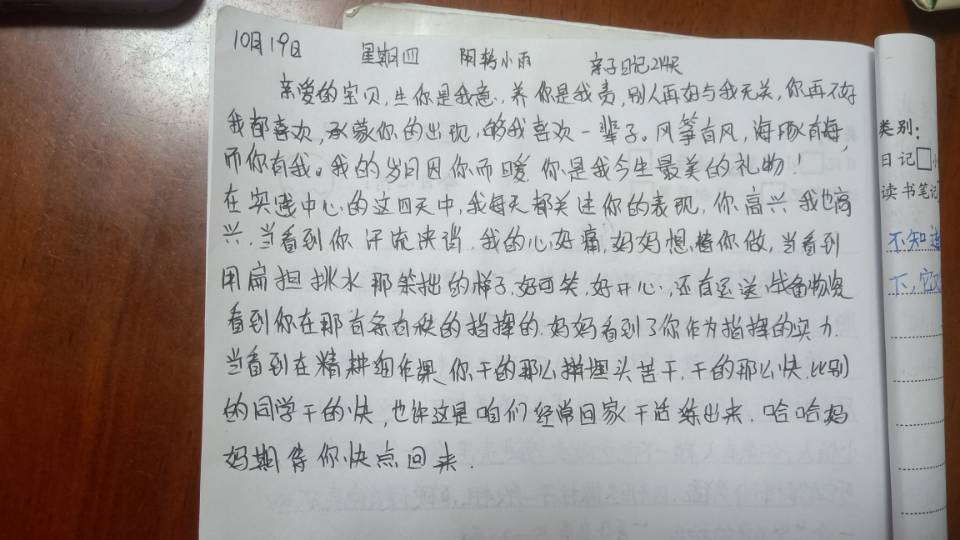 10月19日 星期四 阴转小雨 亲子日记24天
亲爱的宝贝,生你是我意,养你是我责,别人再好与我无关,你再不好
我都喜欢,承蒙你的出现,够我喜欢一辈子。风筝有风,海豚有海,
而你有我。我的岁月因你而暖 你是我今生最美的礼物!
在实践中心的这四天中,我每天都关注你的表现,你高兴我也高
兴,当看到你汗流浃背,我的心好痛,妈妈想替你做,当看到
用扁担挑水那笨拙的样子,好可笑,好开心,还有运送战备物资
看到你在那有条有秩的指挥的,妈妈看到了你作为指挥的实力.
当看到在精耕细作课,你干的那么拼埋头苦干,干的那么快,比别
的同学干的快,也许这是咱们经常回家干活练出来.哈哈妈
妈期待你快点回来.
类别:
日记□
读书笔记
不知道
下,它